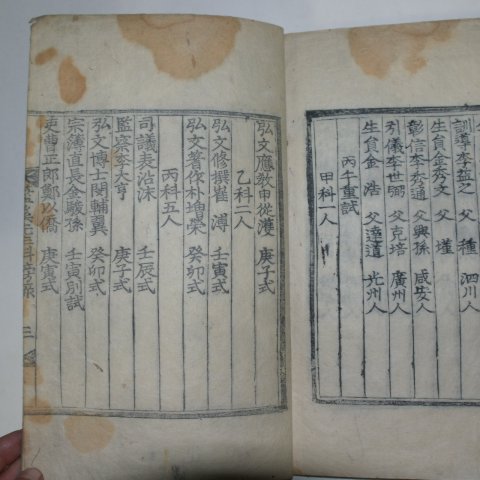 訓導李益之 父 種 泗川人
生員金秀文 父 瑾
彰信李秀通 父興孫 咸安人
引儀李世弼 父克培 廣州人
生員金 浩 父遠達 光州人
丙午重試
甲科一人
弘文應教申從濩 庚子式
乙科二人
弘文修撰崔 溥 壬寅式
弘文著作朴坤榮 癸卯式
丙科五人
司議表沿沫 壬辰式
監察李大亨 庚子式
弘文博士閔輔翼 癸卯式
宗簿直長金駿孫 壬寅別試
吏曹正郎鄭以僑 庚寅式
三